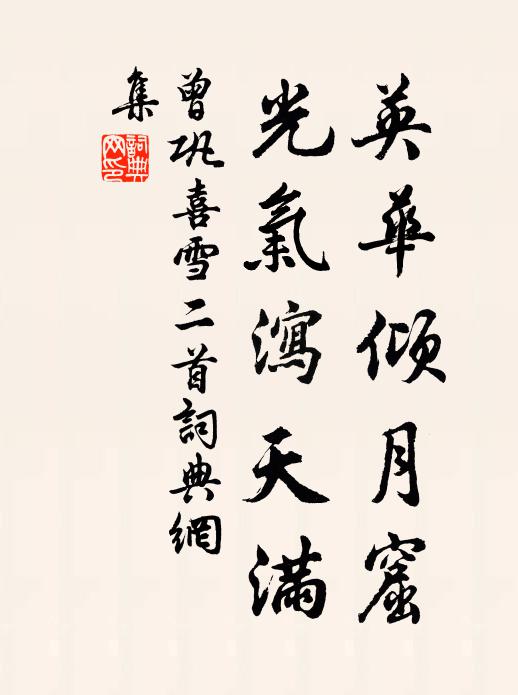 英華傾月窟
光氣瀉天滿
曾巩喜雪二首詞典網
集
詞典網印